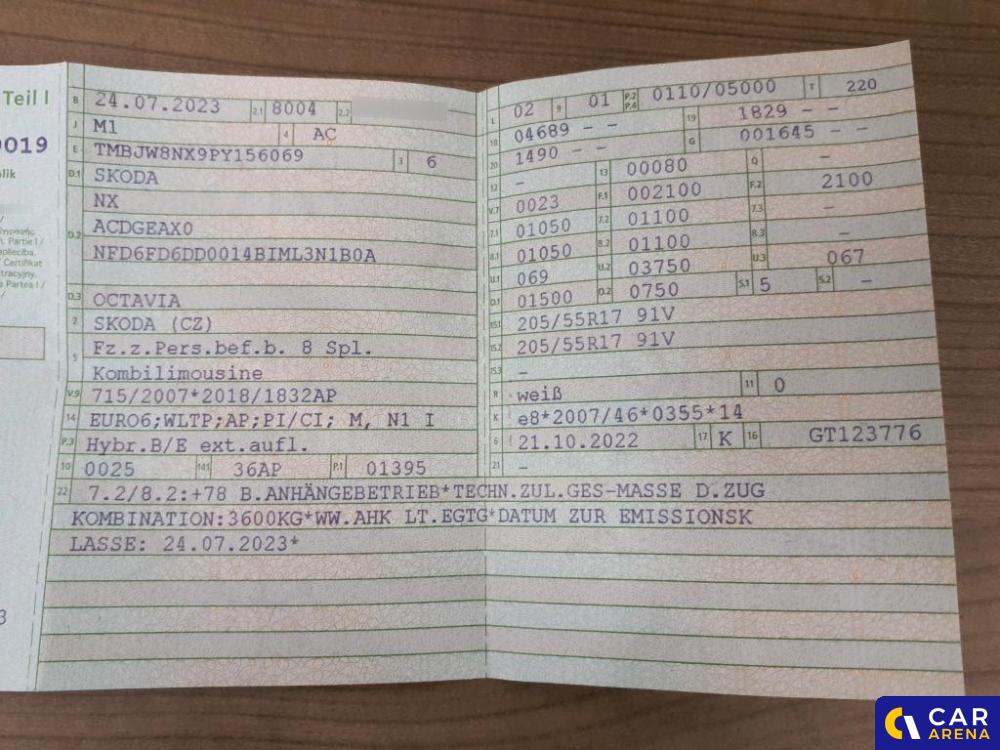 Teil I
0019
B 24.07.2023 2.1 8004 2.2 –
J M1 4 AC
E TMBJW8NX9PY156069 3 6
D.1 SKODA
NX
D.2 ACDGEAX0
NFD6FD6DD0014BIML3N1B0A
D.3 OCTAVIA
2 SKODA (CZ)
5 Fz.z.Pers.bef.b. 8 Spl.
Kombilimousine
V.9 715/2007*2018/1832AP
14 EURO6;WLTP;AP;PI/CI; M, N1 I
P.3 Hybr.B/E ext.aufl.
10 0025 14.1 36AP P.1 01395
L 02 9 01 P.2 P.4 0110/05000 T 220
18 04689 – – 19 1829 – –
20 1490 – – G 001645 – –
12 – 13 00080 Q –
V.7 0023 F.1 002100 F.2 2100
7.1 01050 7.2 01100 7.3 –
8.1 01050 8.2 01100 8.3 –
U.1 069 U.2 03750 U.3 067
O.1 01500 O.2 0750 S.1 5 S.2 –
15.1 205/55R17 91V
15.2 205/55R17 91V
15.3 –
R weiß 11 0
K e8*2007/46*0355*14
6 21.10.2022 17 K 16 GT123776
21 –
22 7.2/8.2:+78 B.ANHÄNGEBETRIEB*TECHN.ZUL.GES-MASSE D.ZUG
KOMBINATION:3600KG*WW.AHK LT.EGTG*DATUM ZUR EMISSIONSK
LASSE: 24.07.2023*
CAR
ARENA